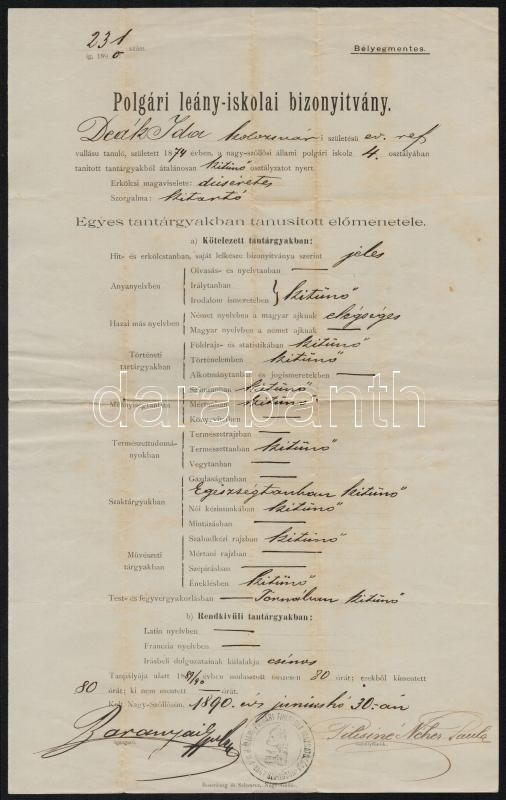 231 szám.
ig. 1890
Bélyegmentes.
Polgári leány-iskolai bizonyitvány.
Deák Ida kolozsvár i születésü ev. ref
vallásu tanuló, született 1874 évben, a nagy-szőllősi állami polgári iskola 4. osztályában
tanitott tantárgyakból átalánosan kitünő osztályzatot nyert.
Erkölcsi magaviselete: dicséretes
Szorgalma: kitartó
Egyes tantárgyakban tanusitott előmenetele.
a) Kötelezett tantárgyakban:
Hit- és erkölcstanban, saját lelkésze bizonyitványa szerint jeles
Olvasás- és nyelvtanban —
Anyanyelvben Irálytanban
Irodalom ismeretében kitünő
Hazai más nyelvben Német nyelvben a magyar ajkunak elégséges
Magyar nyelvben a német ajkunak —
Történeti tantárgyakban
Földrajz- és statistikában kitünő
Történelemben kitünő
Alkotmánytanban és jogismeretekben —
Mennyiségtanban
Számtanban kitünő
Mértanban kitünő
Könyvvitelben —
Természettudomá-nyokban
Természetrajzban —
Természettanban kitünő
Vegytanban —
Szaktárgyakban
Gazdaságtanban —
Egészségtanban kitünő
Női kézimunkában kitünő
Mintázásban —
Müvészeti tárgyakban
Szabadkézi rajzban kitünő
Mértani rajzban —
Szépirásban —
Éneklésben kitünő
Test- és fegyvergyakorlásban — Tornában kitünő
b) Rendkivüli tantárgyakban:
Latin nyelvben —
Franczia nyelvben —
Irásbeli dolgozatainak külalakja csinos
Tanpályája alatt 1889/90 évben mulasztott összesen 80 órát; ezekből kimentett
80 órát; ki nem mentett — órát.
Kelt Nagy-Szőllősön, 1890. évi junius hó 30-án
Baranyai Gyula
igazgató.
osztályfőnök.
darabanth